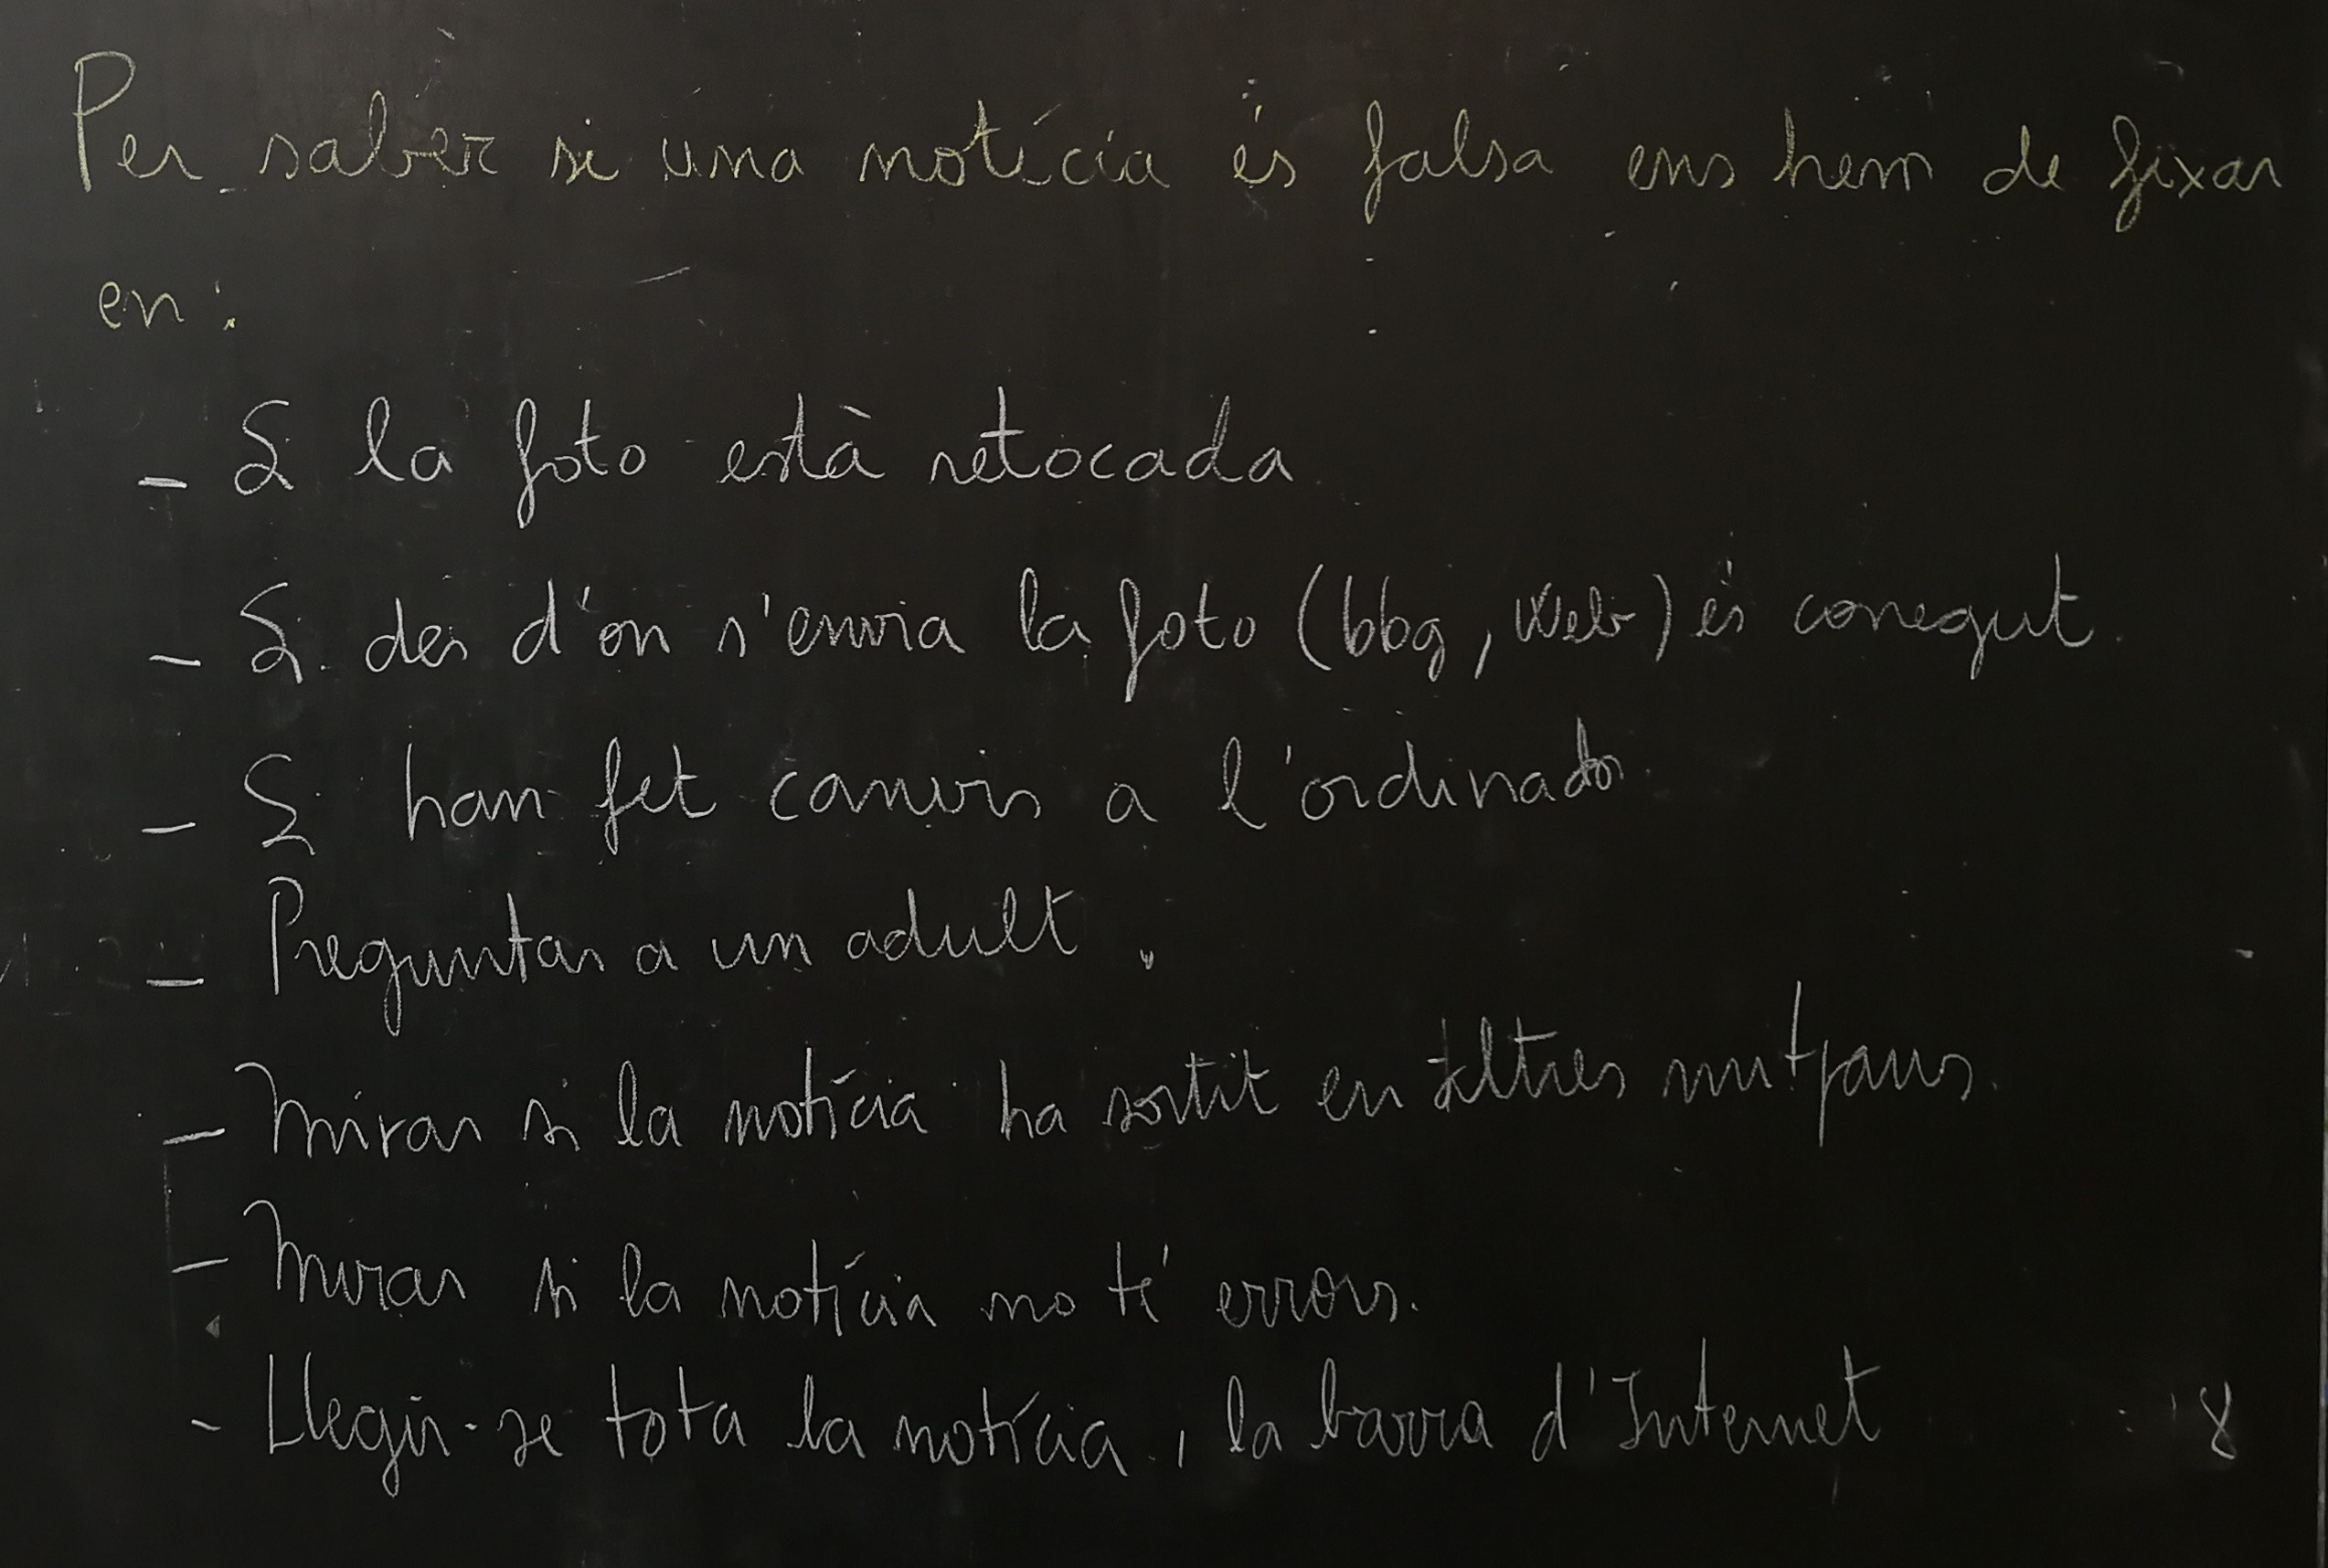 Per saber si una notícia és falsa ens hem de fixar
en:
- Si la foto està retocada
- Si des d'on s'envia la foto (blog, web) és conegut.
- Si han fet canvis a l'ordinador
- Preguntar a un adult.
- Mirar si la notícia ha sortit en altres mitjans.
- Mirar si la notícia no té errors.
- Llegir-se tota la notícia, la barra d'Internet
8